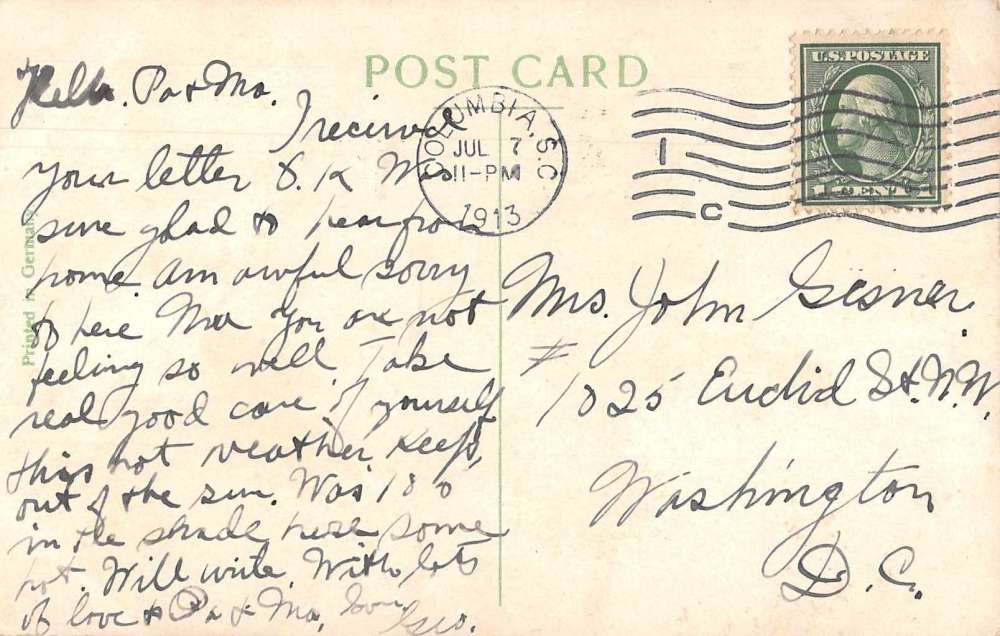 POST CARD
Printed in Germany
Hello. Pa & Ma.
I received
your letter O.K. Ma
sure glad to hear from
home am awful sorry
to here Ma You are not
feeling so well. Take
real good care of yourself
this hot weather, keep
out of the sun. Was 100
in the shade here some
hot. Will write. With lots
of love to Pa & Ma, Son
Geo.
COLUMBIA, S.C.
JUL 7
11-PM
1913
1
C
U.S. POSTAGE
1 CENT 1
Mrs. John Gesner
# 1025 Euclid St. N.W.
Washington
D.C.